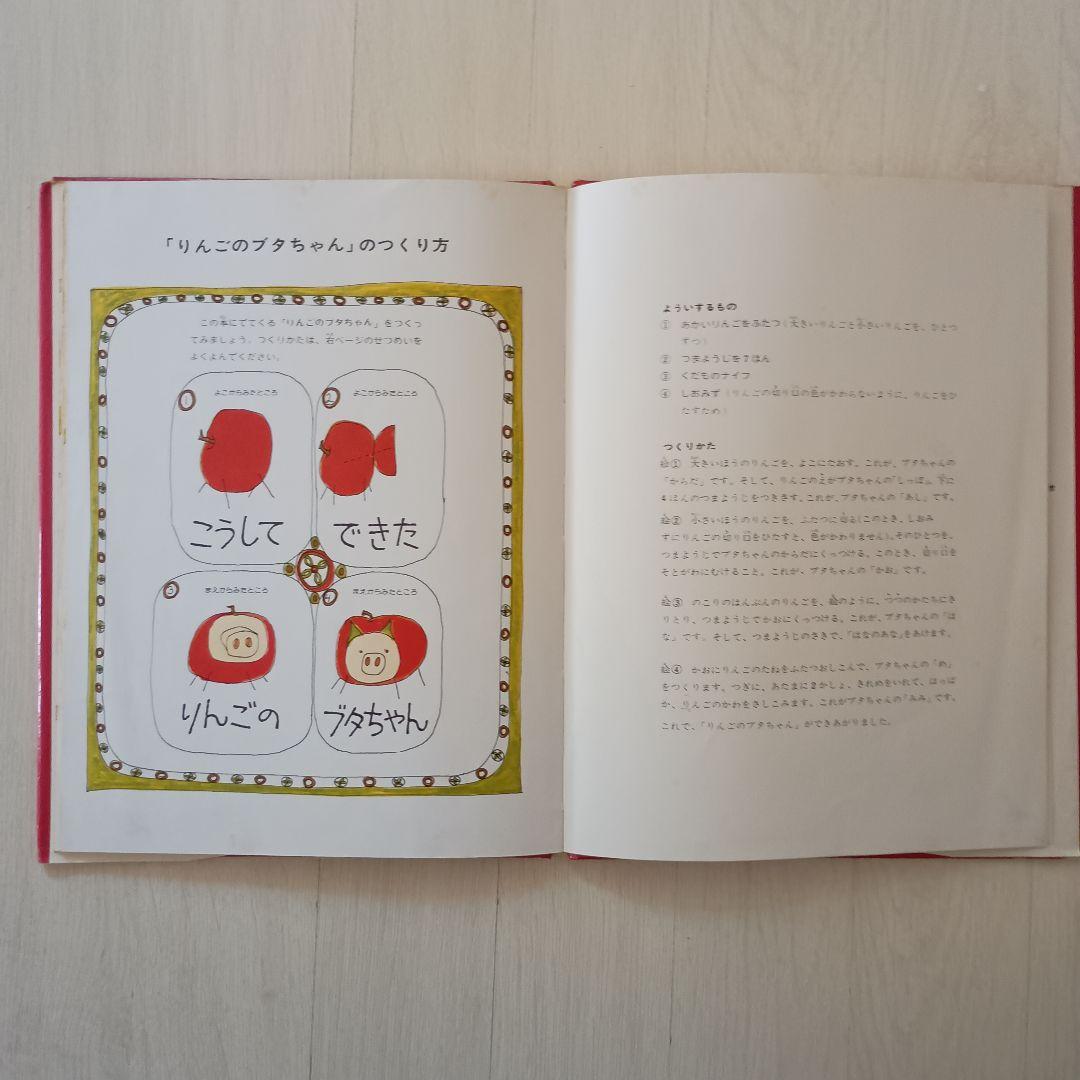 「りんごのブタちゃん」のつくり方
この本にでてくる「りんごのブタちゃん」をつくっ
てみましょう。つくりかたは、右ページのせつめいを
よくよんでください。
1 よこからみたところ
こうして
2 よこからみたところ
できた
3 まえからみたところ
りんごの
4 まえからみたところ
ブタちゃん
よういするもの
① あかいりんごをふたつ(大きいりんごと小さいりんごを、ひとつ
ずつ)
② つまようじを7ほん
③ くだものナイフ
④ しおみず(りんごの切り口の色がかわらないように、りんごをひ
たすため)
つくりかた
絵① 大きいほうのりんごを、よこにたおす。これが、ブタちゃんの
「からだ」です。そして、りんごのえがブタちゃんの「しっぽ」。下に
4ほんのつまようじをつきさす。これが、ブタちゃんの「あし」です。
絵② 小さいほうのりんごを、ふたつに切る(このとき、しおみ
ずにりんごの切り口をひたすと、色がかわりません)。そのひとつを、
つまようじでブタちゃんのからだにくっつける。このとき、切り口を
そとがわにむけること。これが、ブタちゃんの「かお」です。
絵③ のこりのはんぶんのりんごを、絵のように、つつのかたちにき
りとり、つまようじでかおにくっつける。これが、ブタちゃんの「は
な」です。そして、つまようじのさきで、「はなのあな」をあけます。
絵④ かおにりんごのたねをふたつおしこんで、ブタちゃんの「め」
をつくります。つぎに、あたまに2かしょ、きれめをいれて、はっぱ
か、りんごのかわをさしこみます。これがブタちゃんの「みみ」です。
これで、「りんごのブタちゃん」ができあがりました。